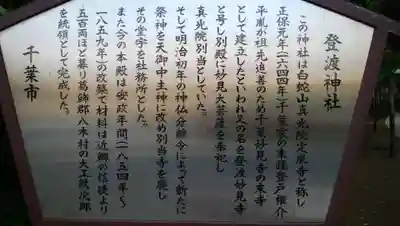 登渡神社
この神社は白蛇山真光院定胤寺と称し
正保元年(一六四四年)千葉家の末裔登戸権介
平胤が祖先追善のため千葉妙見寺の末寺
として建立したといわれ又の名を登渡妙見寺
と号し別殿に妙見大菩薩を奉祀し
真光院別当としていた。
そして明治初年の神仏分離令によって新たに
祭神を天御中主神に改め別当寺を廃し
その堂宇を社務所とした。
また今の本殿は安政年間(一八五四年~
一八五九年)の改築で材料は近郷の信徒より
五百両ほど募り葛飾郡八木村の大工
を統領として完成した。
千葉市